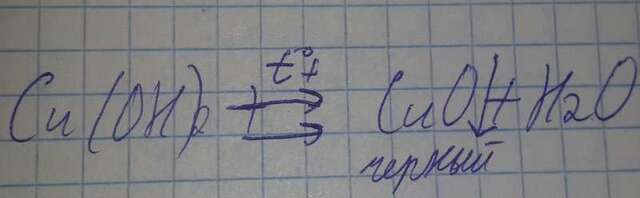 t°+
Cu(OH)₂ ⇉ CuO↓ + H₂O
черный